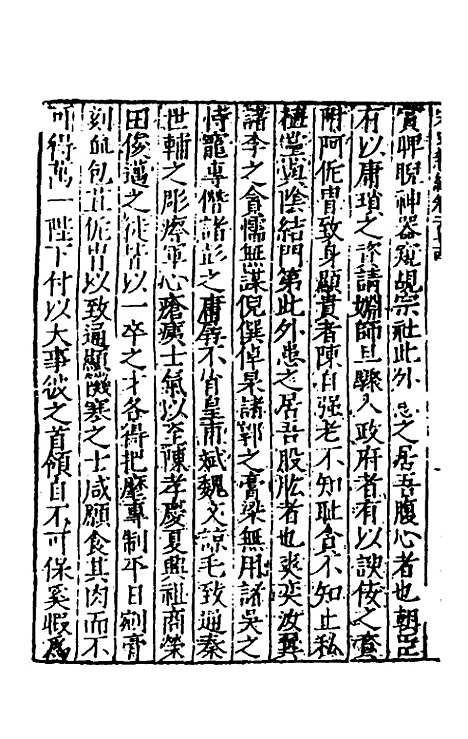 賓睥睨神器窺覘宗社此外患之居吾腹心者也朝臣
有以庸瑣之資請姻師旦驟入政府者有以諛佞之資
附阿侂胄致身顯貴者陳自强老不知耻貪不知止私
植黨與陰結門第此外患之居吾股肱者也爽奕汝翼
諸李之貪懦無謀倪僎倬杲諸郭之膏粱無用諸吳之
恃寵專僭諸彭之庸孱不肖皇甫斌魏文諒毛致通秦
世輔之彫瘵軍心瘡痍士氣以至陳孝慶夏興祖商榮
田俊邁之徒皆以一卒之才各得把麾專制平日剜膏
刻血包苴侂冑以致通顯饑寒之士咸願食其肉而不
可得萬一陛下付以大事彼之首領自不可保奚暇爲